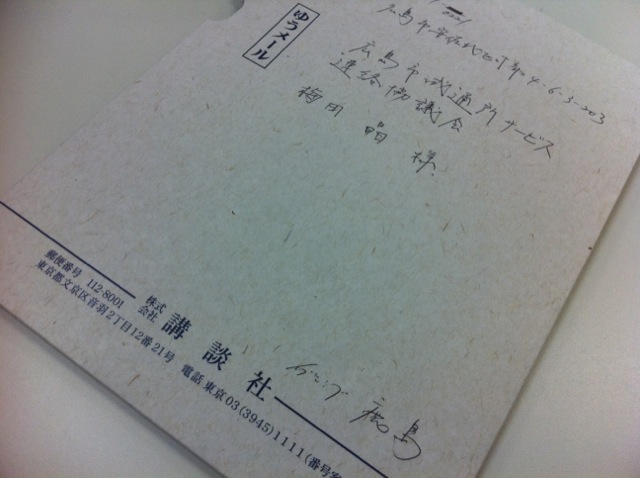 ゆうメール
広島市
広島市域通所サービス
連絡協議会
梅田 晶 様
郵便番号 112-8001
東京都文京区音羽2丁目12番21号
株式会社 講談社
電話 東京 03(3945)1111(番号案
鹿島